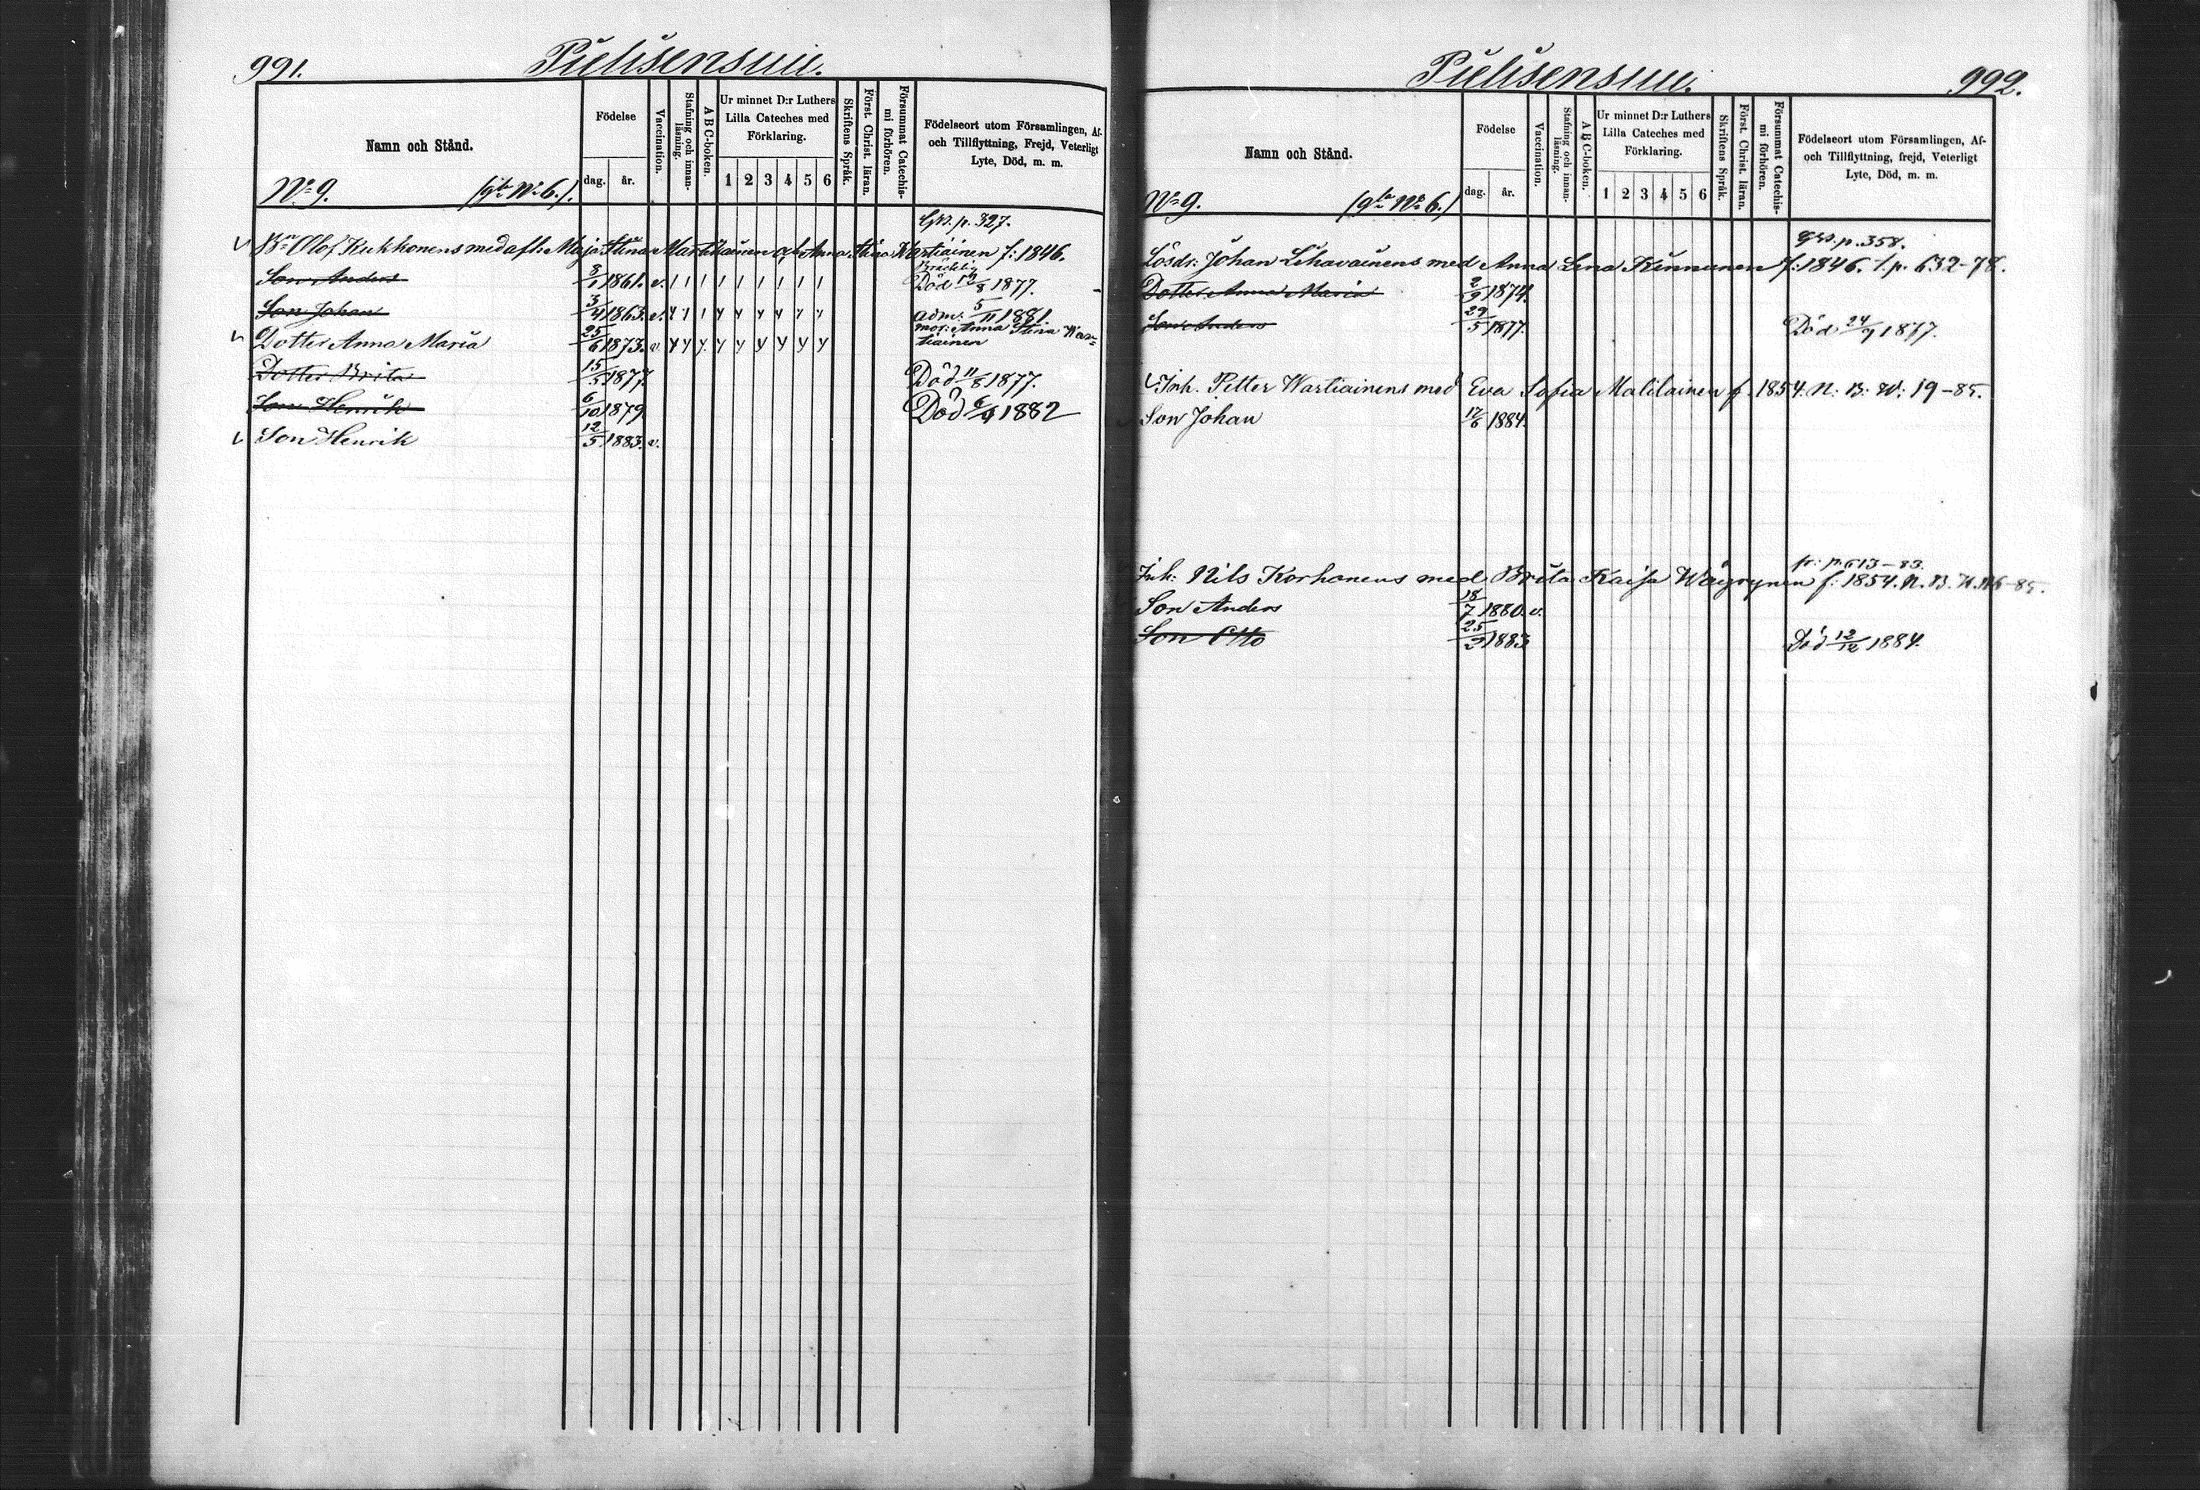 991.
Pielisensuu.
Namn och Stånd.
Födelse
dag.
år.
Vaccination.
Stafning och innan-
läsning.
A B C-boken.
Ur minnet D:r Luthers
Lilla Cateches med
Förklaring.
1 2 3 4 5 6
Skriftens Språk.
Först. Christ. läran.
Försummat Catechis-
mi förhören.
Födelseort utom Församlingen, Af-
och Tillflyttning, Frejd, Veterligt
Lyte, Död, m. m.
No 9. (gla No 6.)
p. 327.
Bn Olof Kukkonens med afl. Maja Stina Martikainen och Anna Stina Wartiainen f: 1846.
Son Anders 8/1 1861. v. 1 1 1 1 1 1 1 1 Död 1877.
Son Johan 3/4 1863. v. adm. 5/11 1881.
Dotter Anna Maria 25/6 1873. v. mor: Anna Stina War-
tiainen
Dotter Brita 15/5 1877. Död 11/8 1877.
Son Henrik 6/10 1879 Död 6/9 1882
Son Henrik 12/5 1883. v.
Pielisensuu.
992.
Namn och Stånd.
Födelse
dag.
år.
Vaccination.
Stafning och innan-
läsning.
A B C-boken.
Ur minnet D:r Luthers
Lilla Cateches med
Förklaring.
1 2 3 4 5 6
Skriftens Språk.
Först. Christ. läran.
Försummat Catechis-
mi förhören.
Födelseort utom Församlingen, Af-
och Tillflyttning, frejd, Veterligt
Lyte, Död, m. m.
No 9. (gla No 6.)
p. 358.
Lösdr: Johan Lihavainens med Anna Lena Kinnunen f: 1846. t. p. 632-78.
Dotter Anna Maria 2/9 1874.
Son Anders 29/5 1877. Död 24/9 1877.
Inh. Petter Wartiainens med Eva Sofia Malilainen f. 1854. N. B. W: 19-85.
Son Johan 17/6 1884.
fr: p. 613-83.
Inh: Nils Korhonens med Brita Kaisa Wäyrynen f: 1854. N. B.
Son Anders 18/7 1880. v.
Son Otto 25/2 1883 Död 12/12 1884.